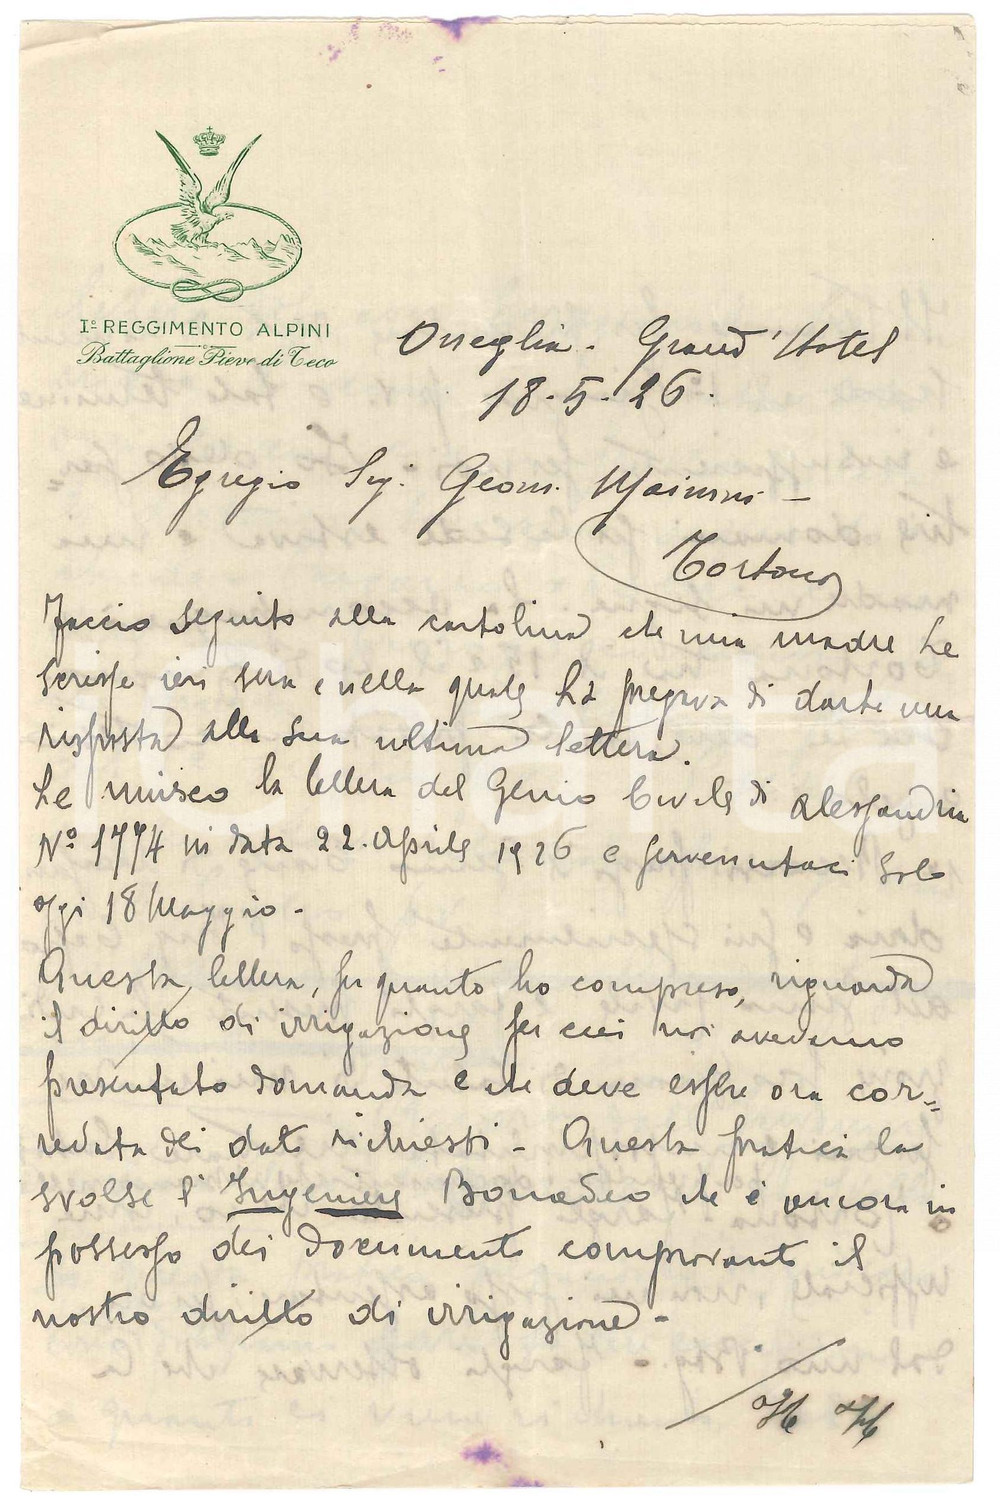 Iº REGGIMENTO ALPINI
Battaglione Pieve di Teco
Oneglia - Grand'Hotel
18-5-26.
Egregio Sig. Geom.
Tortona
Faccio seguito alla cartolina che mia madre Le
scrisse ieri sera e nella quale La pregava di darle una
risposta alla sua ultima lettera.
Le unisco la lettera del Genio Civile di Alessandria
Nº 1774 in data 22. Aprile 1926 e pervenutaci solo
oggi 18 Maggio -
Questa lettera, per quanto ho compreso, riguarda
il diritto di irrigazione per cui noi avevamo
presentato domanda e che deve essere ora cor=
redata dei dati richiesti - Questa pratica la
svolse l'Ingeniere Bonadeo che è ancora in
possesso dei documenti comprovanti il
nostro diritto di irrigazione -